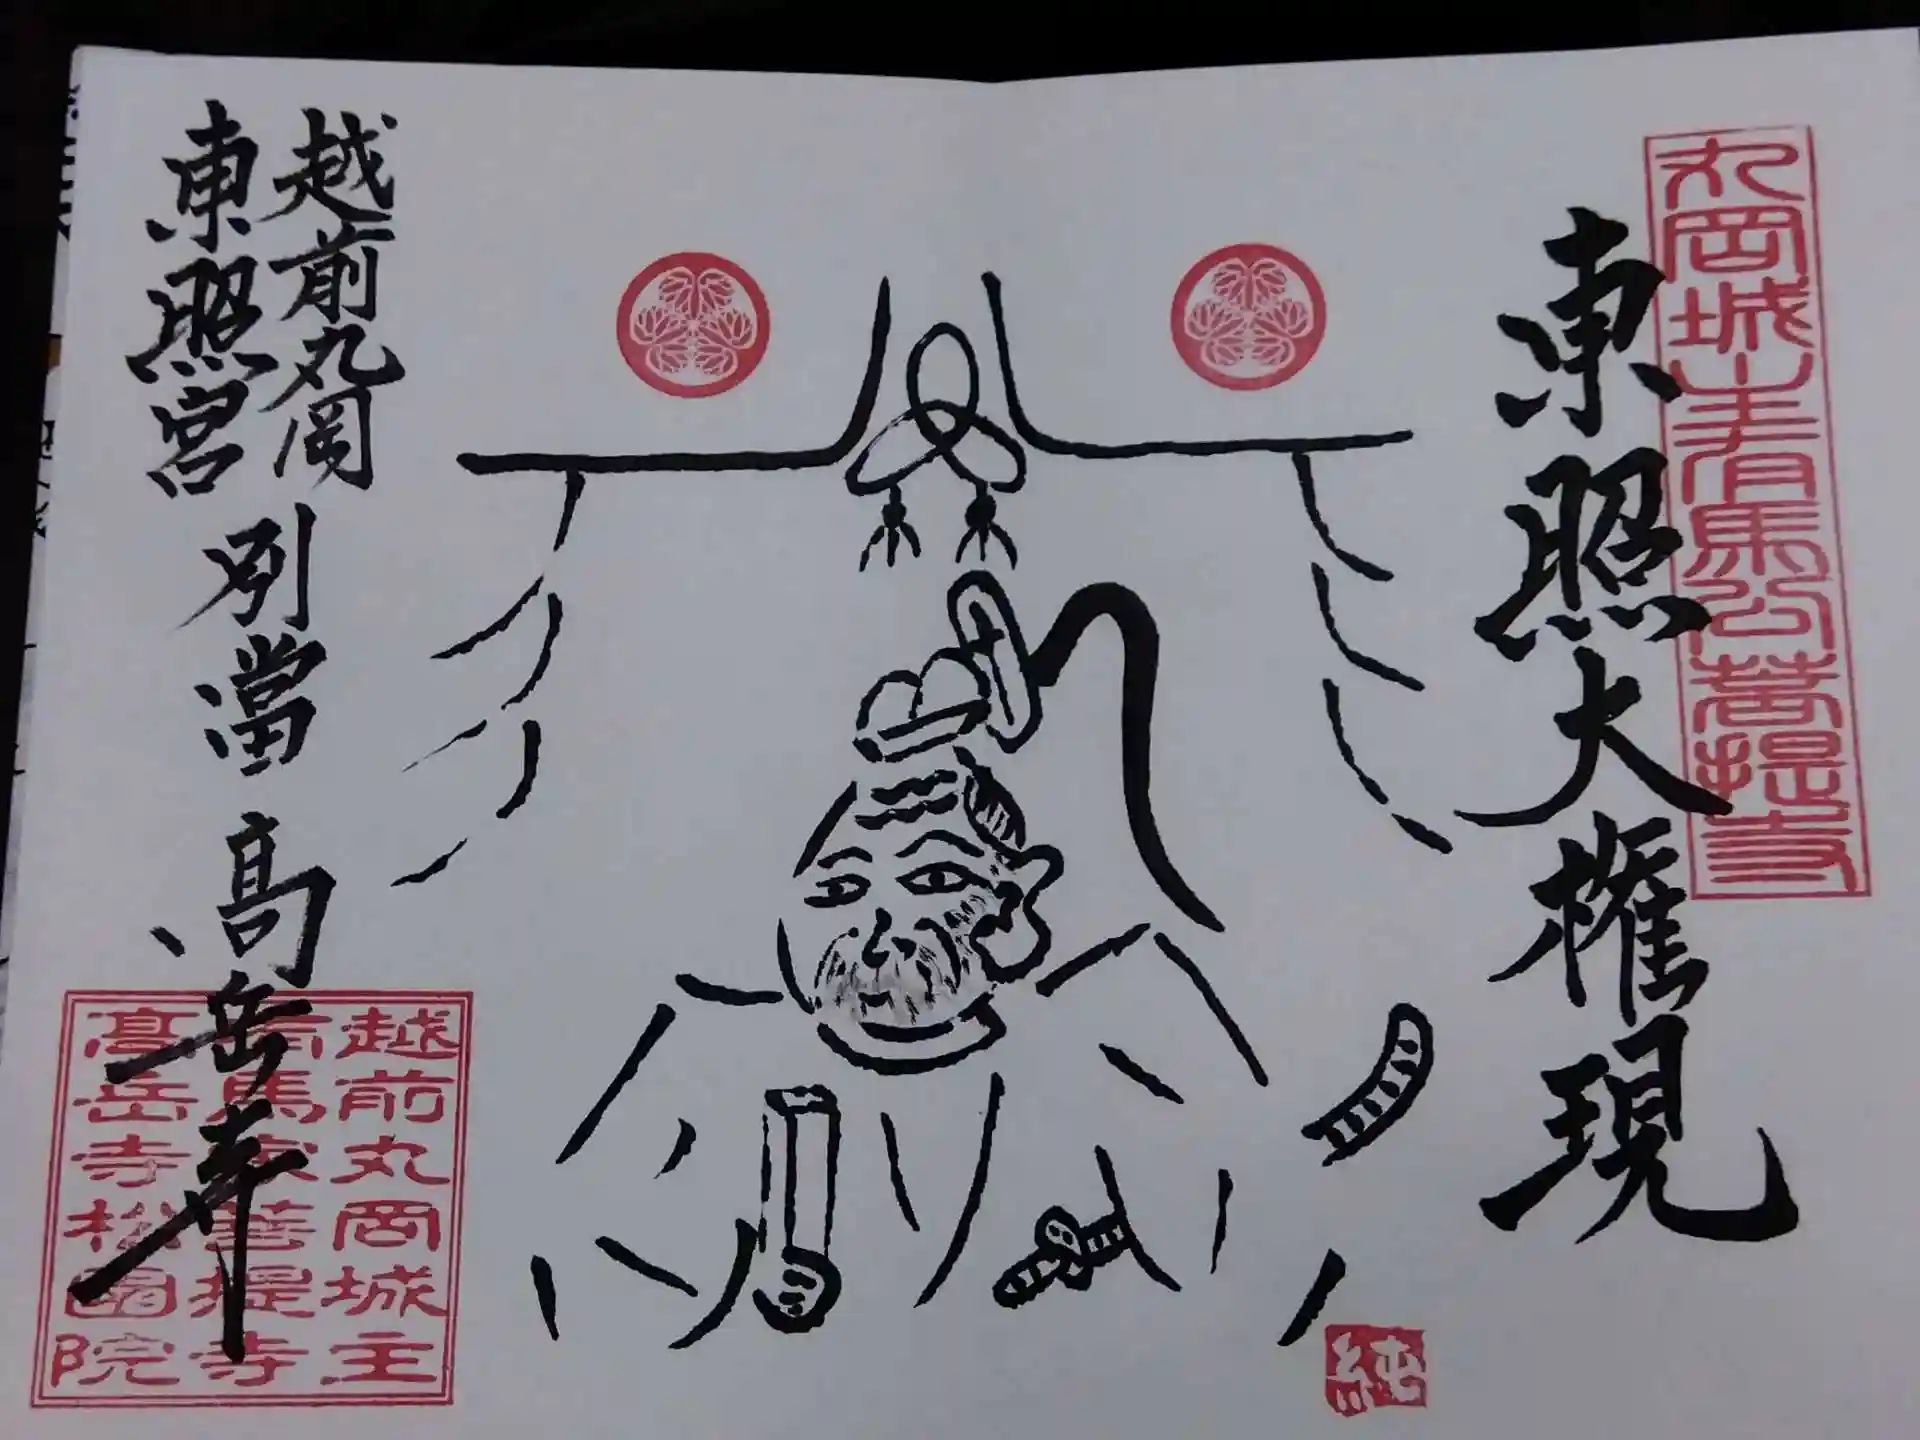 丸岡城主有馬公菩提寺
東照大権現
純
越前丸岡
東照宮
別當 高岳寺
越前丸岡城主
有馬家菩提寺
高岳寺松圄院